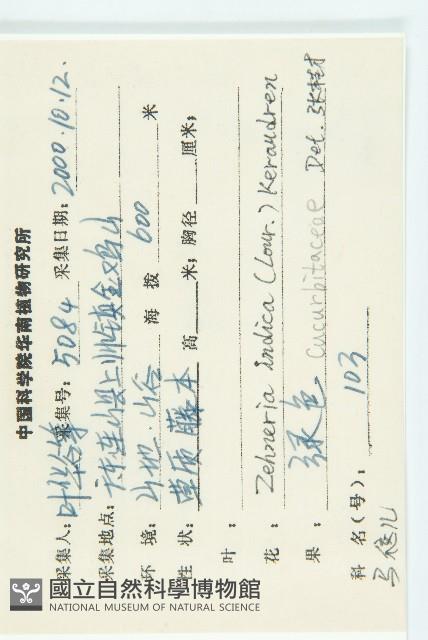 中国科学院华南植物研究所
采集人: 叶华谷等 采集号: 5084 采集日期: 2000.10.12.
采集地点: 广东连山县上帅镇金鸡山
环 境: 山地.山谷 海 拔 600 米
性 状: 草质藤本 高 米; 胸径 厘米;
叶:
花: Zehneria indica (Lour.) Keraudren
果: 绿色 Cucurbitaceae Det.
科 名(号): 103
國立自然科學博物館
NATIONAL MUSEUM OF NATURAL SCIENCE